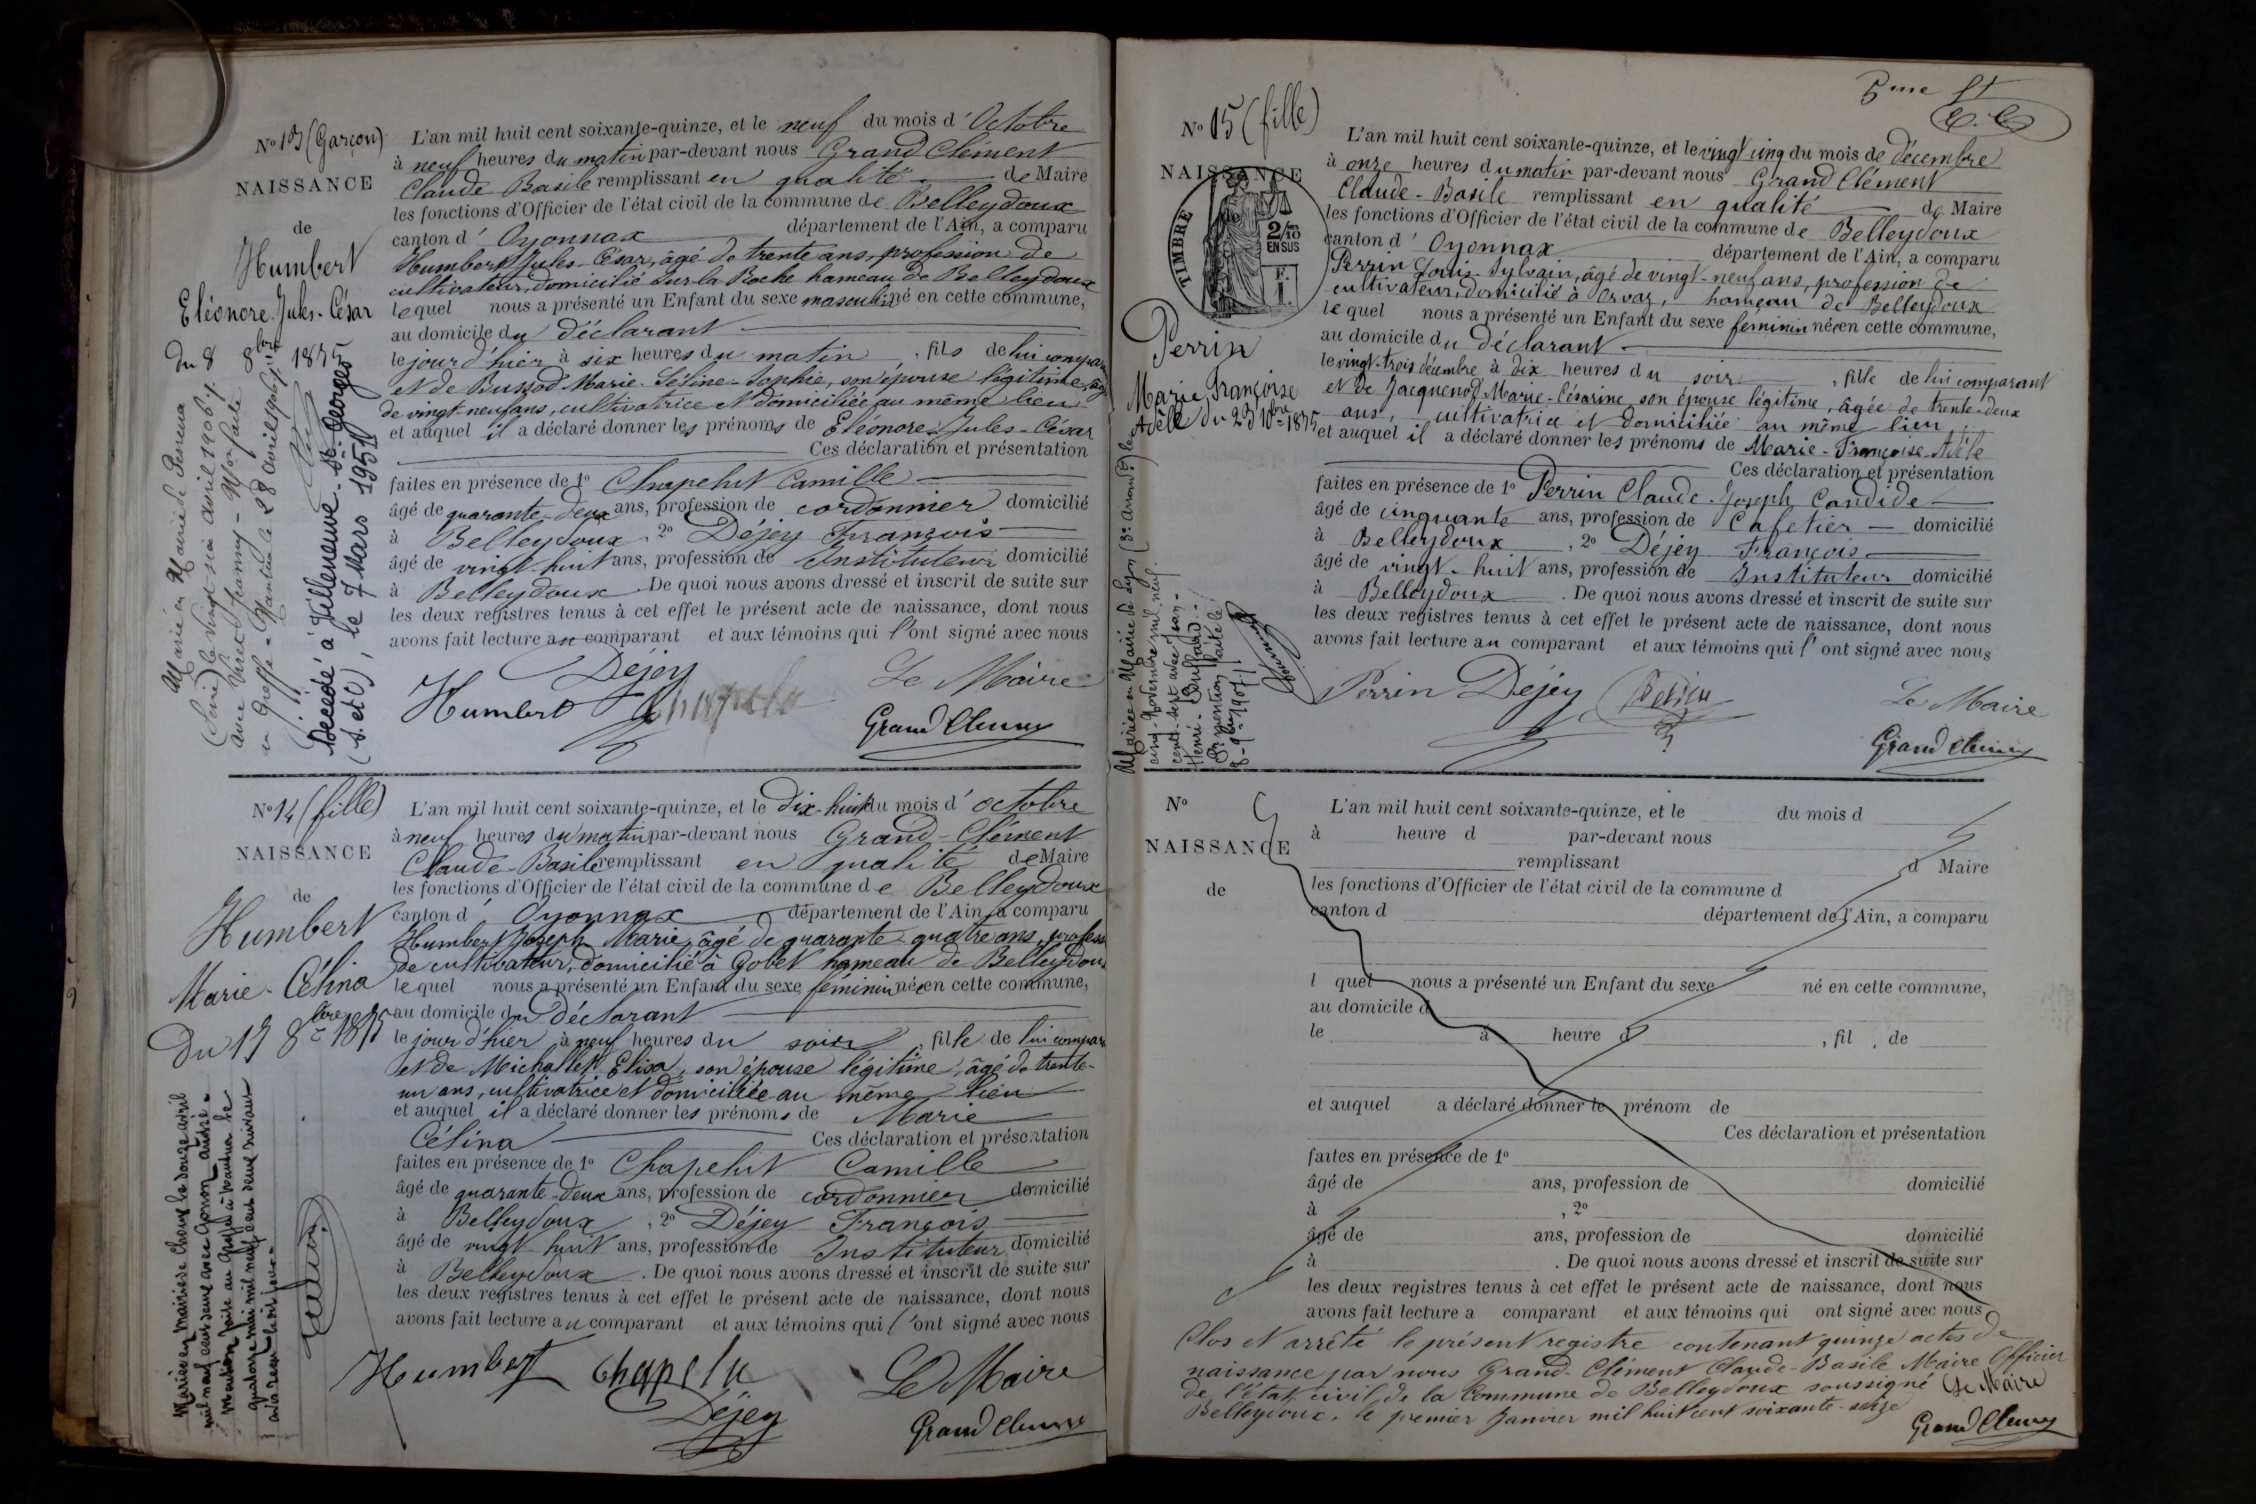 N° 13 (Garçon)
NAISSANCE
de
Humbert
Eléonore-Jules-César
du 8 8bre 1875
Marié en Mairie de
le vingt-six avril 1906
avec Viret Jeanny - Mon faite
au Greffe - Nantua le 28 avril 1906
Décédé à Villeneuve-St-Georges
(S. et O), le 7 Mars 1951
L'an mil huit cent soixante-quinze, et le neuf du mois d'Octobre
à neuf heures du matin par-devant nous Grand Clément
Claude Basile remplissant en qualité de Maire
les fonctions d'Officier de l'état civil de la commune de Belleydoux
canton d' Oyonnax département de l'Ain, a comparu
Humbert Jules-César, âgé de trente ans, profession de
cultivateur, domicilié sur la Roche hameau de Belleydoux
lequel nous a présenté un Enfant du sexe masculin né en cette commune,
au domicile du déclarant
le jour d'hier à six heures du matin, fils de lui comparant
et de Buffod Marie-Céline-Sophie, son épouse légitime, âgée
de vingt-neuf ans, cultivatrice et domiciliée au même lieu
et auquel il a déclaré donner les prénoms de Eléonore-Jules-César
Ces déclaration et présentation
faites en présence de 1° Chapelut Camille
âgé de quarante-deux ans, profession de cordonnier domicilié
à Belleydoux 2° Déjey François
âgé de vingt-huit ans, profession de Instituteur domicilié
à Belleydoux. De quoi nous avons dressé et inscrit de suite sur
les deux registres tenus à cet effet le présent acte de naissance, dont nous
avons fait lecture au comparant et aux témoins qui l'ont signé avec nous
Déjey
Humbert Le Maire
Grand Clément
N° 14 (fille)
NAISSANCE
de
Humbert
Marie-Célina
Du 17 8bre 1875
Mariée en Mairie de le douze avril
mil neuf cent avec
Mention faite au Greffe à Nantua le
quatorze mai mil neuf cent
L'an mil huit cent soixante-quinze, et le dix-huit du mois d'octobre
à neuf heures du matin par-devant nous Grand-Clément
Claude-Basile remplissant en qualité de Maire
les fonctions d'Officier de l'état civil de la commune de Belleydoux
canton d' Oyonnax département de l'Ain, a comparu
Humbert Joseph Marie, âgé de quarante-quatre ans, profession
de cultivateur, domicilié à Gobet hameau de Belleydoux
lequel nous a présenté un Enfant du sexe féminin né en cette commune,
au domicile du déclarant
le jour d'hier à neuf heures du soir, fille de lui comparant
et de Michallet Elisa, son épouse légitime, âgé de trente-
un ans, cultivatrice et domiciliée au même lieu
et auquel il a déclaré donner les prénoms de Marie
Célina Ces déclaration et présentation
faites en présence de 1° Chapelut Camille
âgé de quarante-deux ans, profession de cordonnier domicilié
à Belleydoux, 2° Déjey François
âgé de vingt-huit ans, profession de Instituteur domicilié
à Belleydoux. De quoi nous avons dressé et inscrit de suite sur
les deux registres tenus à cet effet le présent acte de naissance, dont nous
avons fait lecture au comparant et aux témoins qui l'ont signé avec nous
Humbert Chapelu Le Maire
Déjey Grand Clément
5me ft
N° 15 (fille)
NAISSANCE
de
TIMBRE
2/10
EN SUS
F.
1.
Perrin
Marie Françoise
Adèle du 23 10bre 1875
Mariée en Mairie de Lyon (3e arrondt) le
cinq Novembre mil neuf
cent sept avec Jean-
Henri
Pr mention faite le
8-9bre 1907
L'an mil huit cent soixante-quinze, et le vingt cinq du mois de décembre
à onze heures du matin par-devant nous Grand Clément
Claude-Basile remplissant en qualité de Maire
les fonctions d'Officier de l'état civil de la commune de Belleydoux
canton d' Oyonnax département de l'Ain, a comparu
Perrin Louis-Sylvain, âgé de vingt-neuf ans, profession de
cultivateur, domicilié à Orvaz, hameau de Belleydoux
lequel nous a présenté un Enfant du sexe féminin née en cette commune,
au domicile du déclarant
le vingt-trois décembre à dix heures du soir, fille de lui comparant
et de Jacquenod Marie-Césarine son épouse légitime, âgée de trente-deux
ans, cultivatrice et domiciliée au même lieu
et auquel il a déclaré donner les prénoms de Marie-Françoise-Adèle
Ces déclaration et présentation
faites en présence de 1° Perrin Claude-Joseph Candide
âgé de cinquante ans, profession de Cafetier domicilié
à Belleydoux, 2° Déjey François
âgé de vingt-huit ans, profession de Instituteur domicilié
à Belleydoux. De quoi nous avons dressé et inscrit de suite sur
les deux registres tenus à cet effet le présent acte de naissance, dont nous
avons fait lecture au comparant et aux témoins qui l'ont signé avec nous
Perrin Déjey Le Maire
Grand Clément
N°
NAISSANCE
de
L'an mil huit cent soixante-quinze, et le du mois d
à heure d par-devant nous
remplissant d Maire
les fonctions d'Officier de l'état civil de la commune d
canton d département de l'Ain, a comparu
l quel nous a présenté un Enfant du sexe né en cette commune,
au domicile d
le à heure d , fil , de
et auquel a déclaré donner le prénom de
Ces déclaration et présentation
faites en présence de 1°
âgé de ans, profession de domicilié
à , 2°
âgé de ans, profession de domicilié
à . De quoi nous avons dressé et inscrit de suite sur
les deux registres tenus à cet effet le présent acte de naissance, dont nous
avons fait lecture a comparant et aux témoins qui ont signé avec nous
Clos et arrêté le présent registre contenant quinze actes de
naissance par nous Grand-Clément Claude-Basile Maire Officier
de l'état civil de la Commune de Belleydoux soussigné
Belleydoux, le premier Janvier mil huit cent soixante-seize
Le Maire
Grand Clément